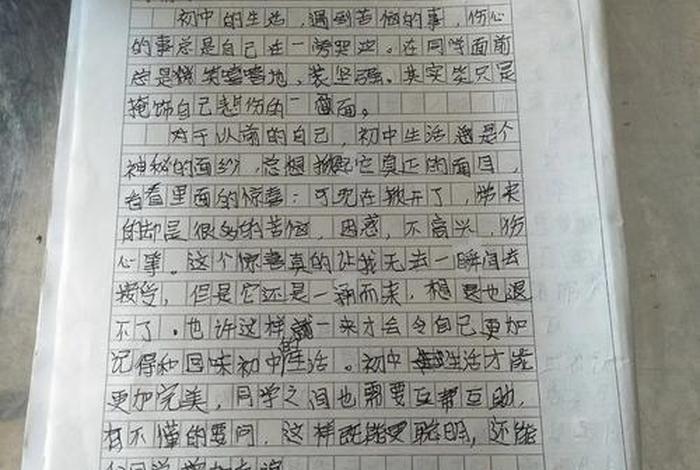 初中的生活，遇到苦恼的事，伤心
的事总是自己在一旁哭泣。在同学面前
总是嬉笑嘻嘻地，装坚强。其实笑只是
掩饰自己悲伤的一面。
对于以前的自己，初中生活总是个
神秘的面纱，总想掀起它真正的面目，
看看里面的惊喜：可现在掀开了，带来
的却是很多的苦恼，困惑，不高兴，伤
心事。这个惊喜真的让我无去一瞬间去
接受，但是它还是一涌而来，想退也退
不了。也许这样一来才会令自己更加
记得和回味初中生活。初中生活才能
更加完美，同学之间也需要互帮互助，
有不懂的要问，这样既能更聪明，还能